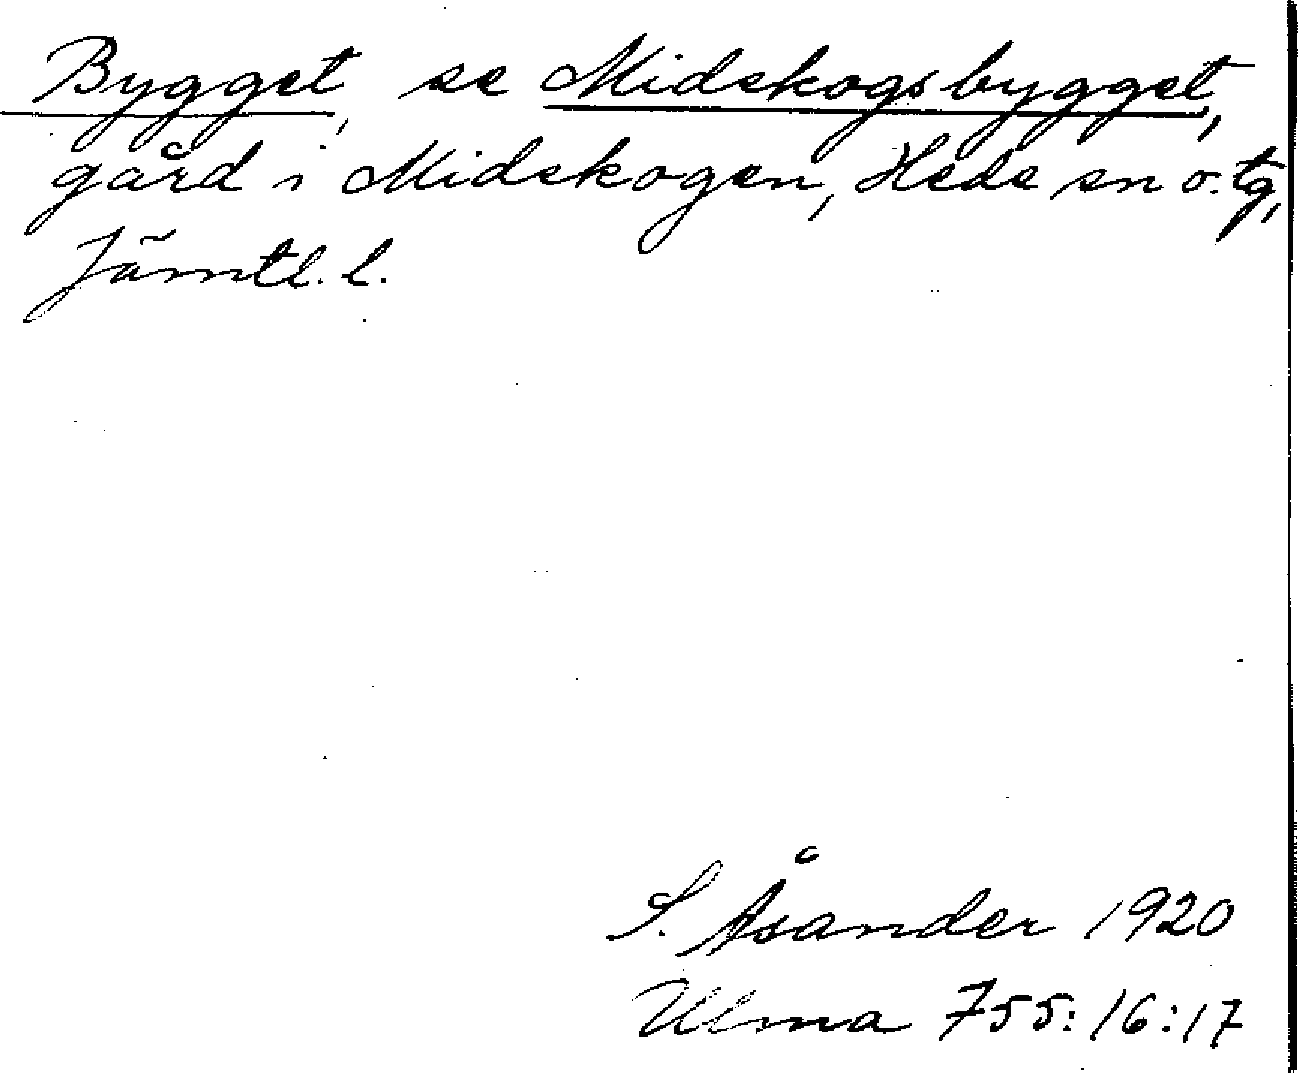 Bygget, se Midskogsbygget,
gård i Midskogen, Hede sn o. tg,
Jämtl. l.
S. Åsander 1920
Ulma 755:16:17